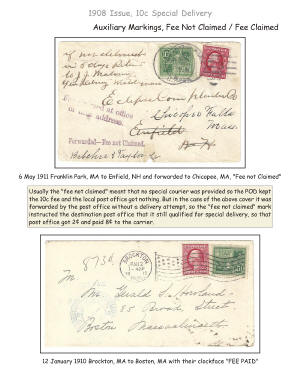 1908 Issue, 10c Special Delivery
Auxiliary Markings, Fee Not Claimed / Fee Claimed
If not delivered
in 5 days return
to
Chicopee Falls
Mass
Enfield
N H
office
address.
Forwarded-Fee not Claimed.
6 May 1911 Franklin Park, MA to Enfield, NH and forwarded to Chicopee, MA, "Fee not Claimed"
Usually the "fee not claimed" meant that no special courier was provided so the POD kept
the 10c fee and the local post office got nothing. But in the case of the above cover it was
forwarded by the post office without a delivery attempt, so the "fee not claimed" mark
instructed the destination post office that it still qualified for special delivery, so that
post office got 2¢ and paid 8¢ to the carrier.
BROCKTON
Mr. Gerald S. Howland
85 Broad Street
Boston Massachusetts
12 January 1910 Brockton, MA to Boston, MA with their clockface "FEE PAID"